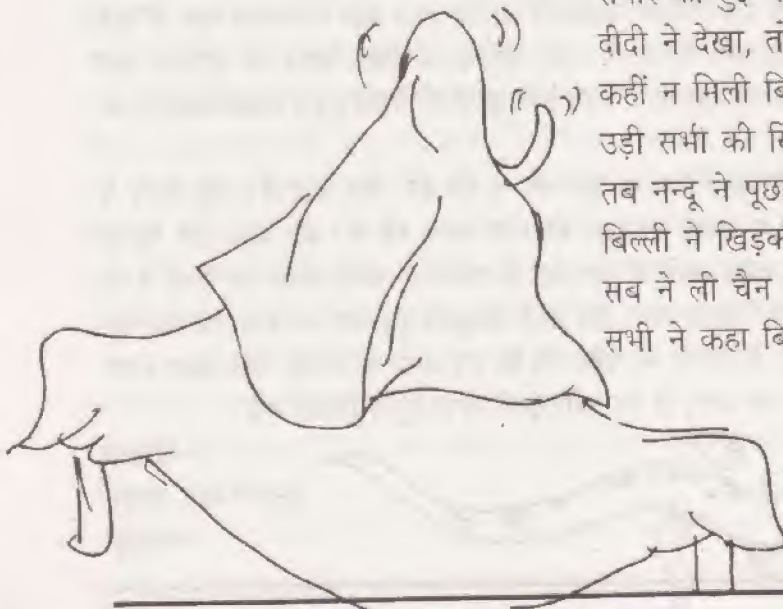 दीदी ने देखा, तो
कहीं न मिली
उड़ी सभी की
तब नन्दू ने
बिल्ली ने
सब ने ली चैन
सभी ने कहा